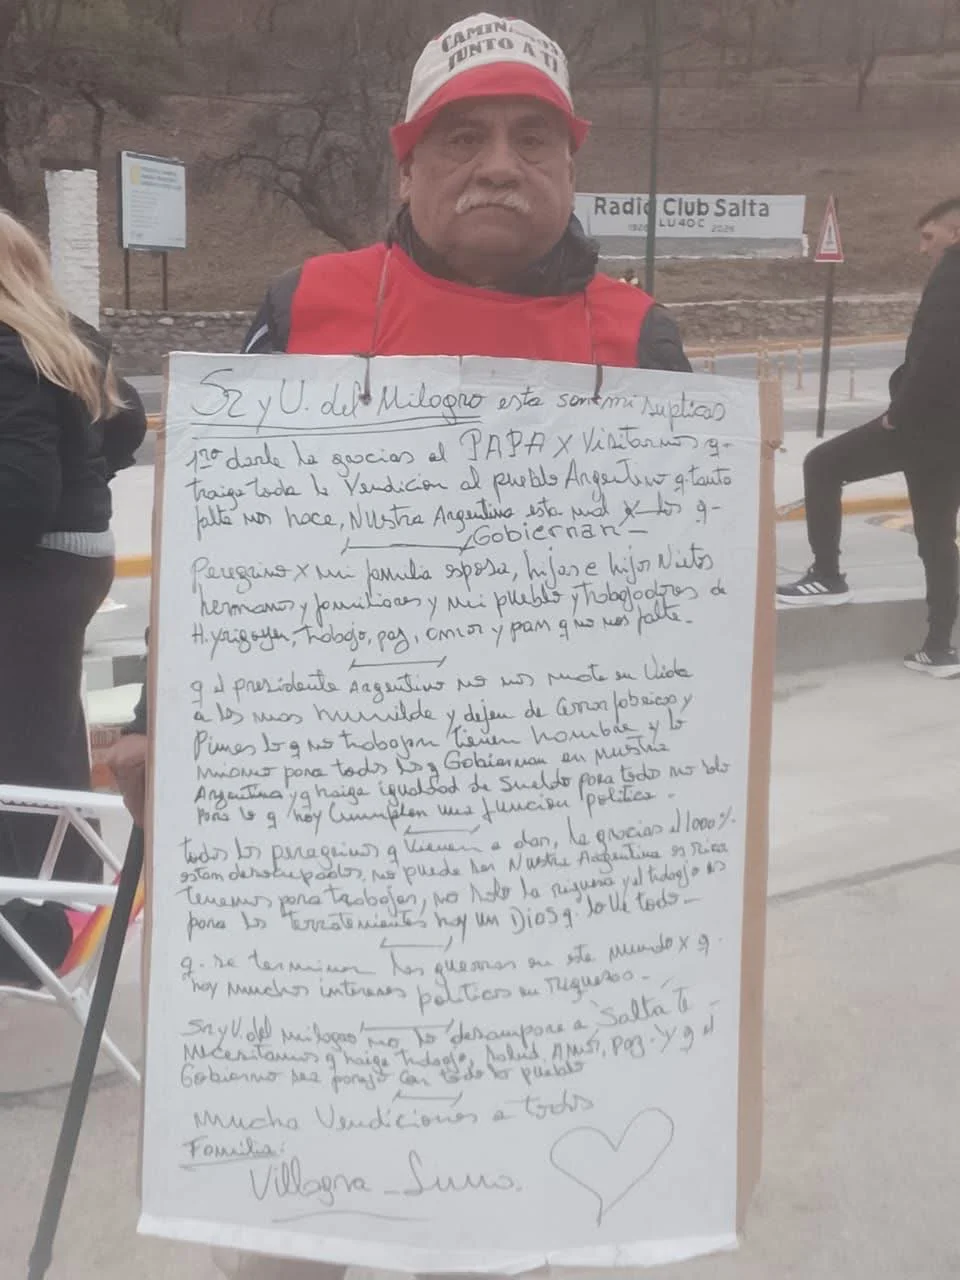 CAMINAMOS
JUNTO A TI
Radio Club Salta
LU4OC
Sr y V. del Milagro esta son mi suplicas
1ro darle la gracias al PAPA X Visitarnos q-
traiga toda la Vendicion al pueblo Argentino q. tanto
falta nos hace, Nustra Argentina esta mal X los q-
Gobiernan-
Peregrino X mi familia esposa, hijas e hijos Nietos
hermanos y familiares y mi pueblo y trabajadores de
H. yrigoyen, trabajo, paz, amor y pan q no nos falte.
q el presidente Argentino no nos mate en Vida
a los mas humilde y dejen de cerrar fabricas y
Pimes lo q no trabajan tienen hambre y lo
mismo para todos los q Gobiernan en nustra
Argentina y q haiga igualdad de Sueldo para todo no solo
para lo q hoy cumplen una funcion politica.
todos los peregrinos q vienen a dar, la gracias el 1000%
estan desocupados, no puede ser Nustra Argentina es Rica
tenemos para trabajar, no solo la riquesa y el trabajo es
para los terratenientes hay un Dios q. lo Ve todo-
q. se terminen las guerras en este mundo X q.
hoy muchos intereses politicos en riquesas.-
Sr y V. del milagro no lo desampare a Salta Te
necesitamos q haiga trabajo, salud, Amor, paz. Y q el
Gobierno sea parejo con todo lo pueblo
Mucha Vendiciones a todos
Familia:
Villagra -